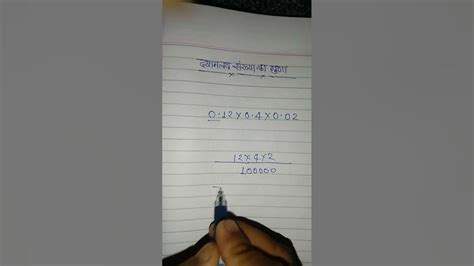 दशमलव संख्या का गुणा
0.12×0.4×0.02
12×4×2
100000